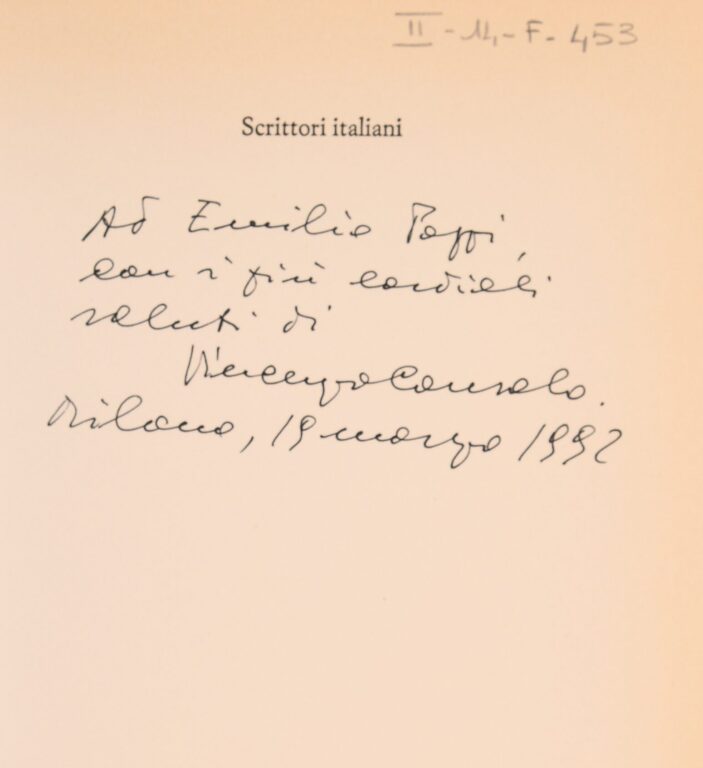 II - 14 - F. 453
Scrittori italiani
Ad Emilio Pozzi,
con i più cordiali
saluti di
Vincenzo Consolo.
Milano, 19 marzo 1992